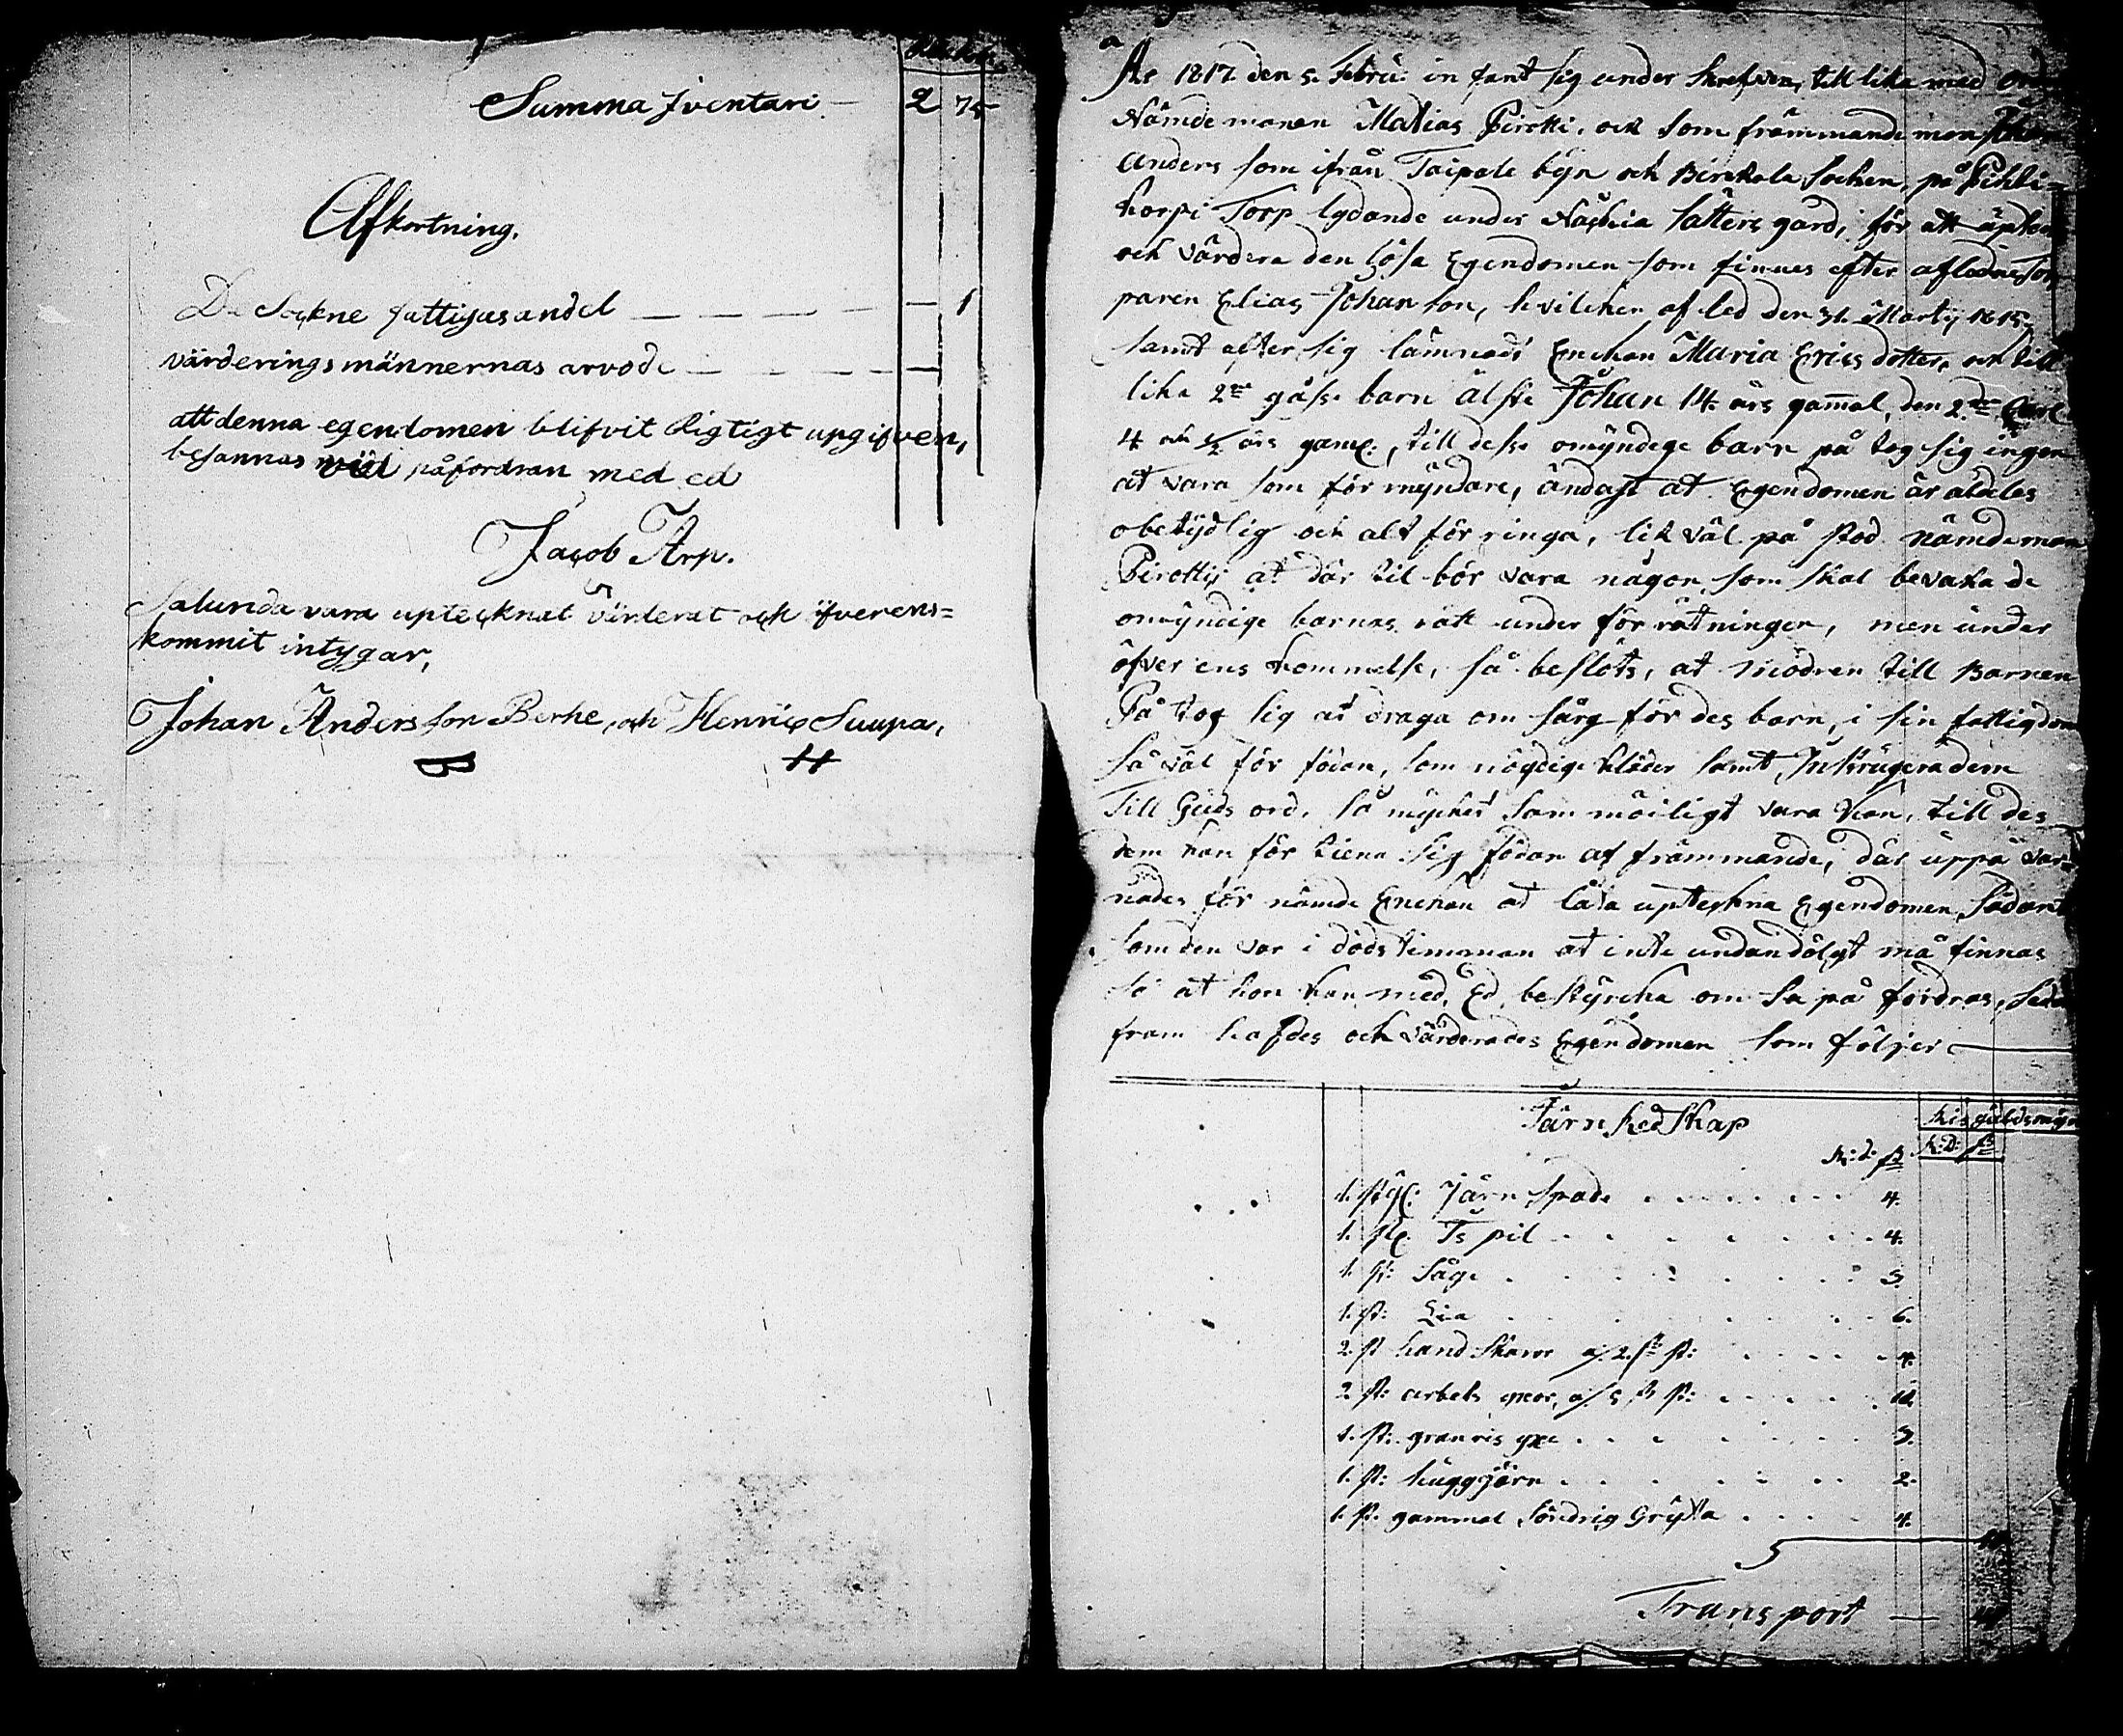 Summa Iventari — 2 75
Afkortning.
De Sockne fattigas andel — — — — — 1
värderings männernas arvode — — — — —
att denna egendomen blifvit Rigtigt upgifven,
besannas vid påfordran med ed
Jacob Arp.
Salunda vara uptecknat värderat och öfverens=
kommit intygar,
Johan Andersson Berhe, och Henric Suupa,
B H
År 1817 den 5. Febru: in fant sig under skrefven, till lika med
Nämdemanen Matias Pirotti, och som främmande man Johan
Anders son ifrån Taipale byn och Birkala Socken, på Pihla=
korpi Torp lydande under Näshia Sätters gård, för att
och värdera den lösa Egendomen som finnes efter afledne Tor
paren Elias Johan son, hvilcken af led den 31. Martij 1815,
samt after sig lämnadt Enckan Maria Erics dotter, och till
lika 2ne gåsse barn älste Johan 14. års gamal, den 2:dre Carl
4 och ½ års gaml:, till desse omyndege barn på tog sig ingen
at vara som för myndare, ändast at Egendomen är aldeles
obetydlig och alt för ringa, lik väl på stod nämdeman
Pirottij at där til bör vara någon som skal bevaka de
omyndige barnas rätt under för rätningen, men under
öfver ens kommelse, så beslöts, at modren till Barnen
På tog sig at draga om sårg för des barn, i sin fattigdom
så väl för födan, som nögdige kläder samt Inkrugera dem
Till Guds ord, så mycket som möiligt vara kan, till des
dem kan för tiena sig födan af främmande, där uppå var=
nades för nämde Enckan at låta upteckna Egendomen Sådant
som den var i döds timman at inte undandölgt må finnas
så at hon kan med Ed bestyrcka om så på fordras,
fram hafdes och värderades Egendomen som följer
Järn Redskap
R:d: ß R:D: ß
1. st gl: Järn Spade . . . . . . 4.
1. st: Is pil . . . . . . . 4.
1. st: Såge . . . . . . . 3
1. st: Lia . . . . . . . 6.
2. st hand Skaror a/. 2. ß st: . . . . 4.
2. st: arbets yxor, a/ 5 ß st: . . . . 10.
1. st: granris yxe . . . . . . 3.
1. st: huggjärn . . . . . . 2.
1. st. gammal Söndrig Gryta . . . . 4.
Transport —